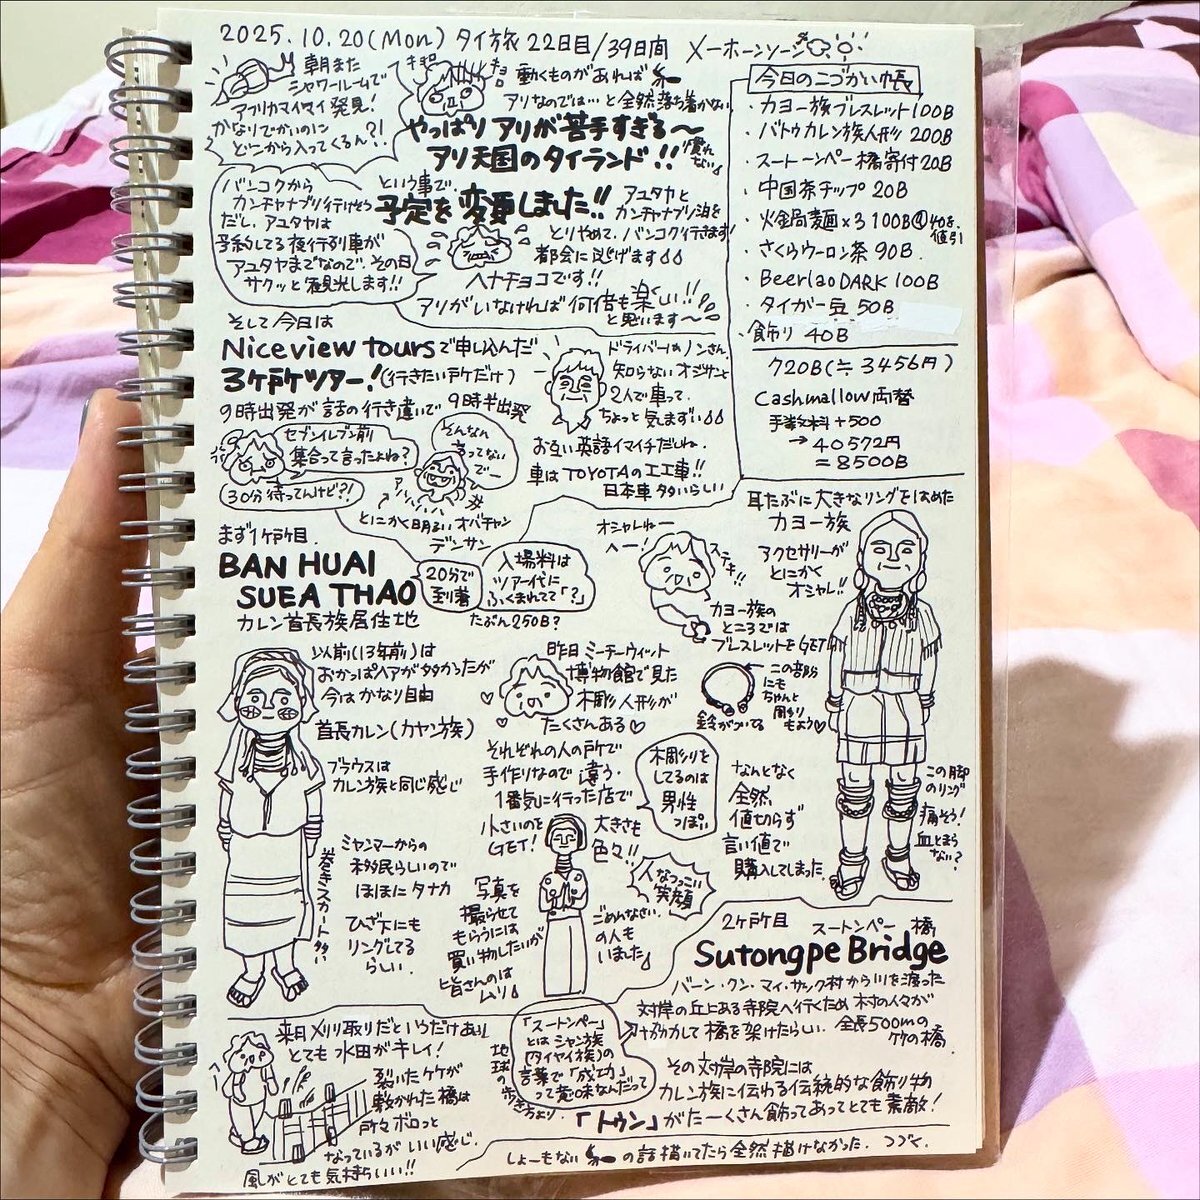 2025.10.20(Mon) タイ旅 22日目/39日間 メーホーンソーン
朝また
シャワールームで
アフリカマイマイ発見!
かなりでかいのに
どこから入ってくるん?!
キョロ
キョロ
動くものがあれば
アリなのでは…と全然落ち着かない
やっぱり アリが苦手すぎる〜
アリ天国のタイランド!!
慣れない
という事で、
予定を変更しました!!
バンコクから
カンチャナブリ行けそう
だし、アユタヤは
予約してる夜行列車が
アユタヤまでなので、その日
サクッと観光します!!
アユタヤと
カンチャナブリ泊を
とりやめて、バンコク行きます!
都会に逃げます
ヘナチョコです!!
アリがいなければ 何倍も楽しい!!
と思います〜
今日のこづかい帳
・カヨー族ブレスレット100B
・バトゥカレン族人形 200B
・スートーンペー橋寄付20B
・中国茶チップ 20B
・火鍋麺×3 100B
値引
・さくらウーロン茶 90B
・Beerlao DARK 100B
・タイガー豆 50B
・飾り 40B
720B(≒3456円)
Cashmallow両替
手数料+500
→40572円
=8500B
そして今日は
Niceview toursで申し込んだ
3ヶ所ツアー!(行きたい所だけ)
9時出発が 話の行き違いで 9時半出発
セブンイレブン前
集合って言ったよね?
30分待ってんけど?!
そんなん
言ってない
でー
とにかく明るいオバチャン
デンサン
ドライバーはノンさん。
知らないオジサンと
2人で車って、
ちょっと気まずい
お互い英語イマイチだしね。
車はTOYOTAの工工車!!
日本車多いらしい
まず1ヶ所目
BAN HUAI
SUEA THAO
カレン首長族居住地
20分で
到着
入場料は
ツアー代に
ふくまれてて「?」
たぶん250B?
以前(13年前)は
おかっぱヘアが多かったが
今はかなり自由
首長カレン(カヤン族)
ブラウスは
カレン族と同じ感じ
ミャンマーからの
移民らしいので
ほほにタナカ
ひざ下にも
リングしてる
らしい。
巻きスカート多い
昨日 ミーチーウィット
博物館で見た
木彫り人形が
たくさんある♡
それぞれの人の所で
手作りなので違う。
1番気に行った店で
小さいのを
GET!
大きさも
色々!!
木彫りを
してるのは
男性
っぽい
写真を
撮らせて
もらうには
買い物したいが
皆さんのは
ムリ
人なつっこい
笑顔
ごめんなさい。
の人も
いました
オシャレねー
へー!
ステキ!!
カヨー族の
ところでは
ブレスレットをGET
この部分
にも
ちゃんと
周りも
よう♡
鈴がついてる
なんとなく
全然
値切らず
言い値で
購入してしまった。
耳たぶに大きなリングをはめた
カヨー族
アクセサリーが
とにかく
オシャレ!!
この脚
のリング
痛そう!
血とまら
ない?
2ヶ所目 スートンペー 橋
Sutongpe Bridge
バーン・クン・マイ・サック村から川を渡った
対岸の丘上ある寺院へ行くため 村の人々が
協力して 橋を架けたらしい。全長500mの
竹の橋。
「スートンペー」
とは シャン族
(タイヤイ族)の
言葉で「成功」
って意味なんだって
地球の歩き方より
その対岸の寺院には
カレン族に伝わる伝統的な飾り物
「トゥン」がたーくさん飾ってあってとても素敵!
来月 刈り取りだというだけあり
とても 水田がキレイ!
裂いたケケが
敷かれた橋は
所々ボロっと
なっているがいい感じ。
風がとても気持ちいい!!
しょーもない の話描いてたら全然描けなかった。つづく。